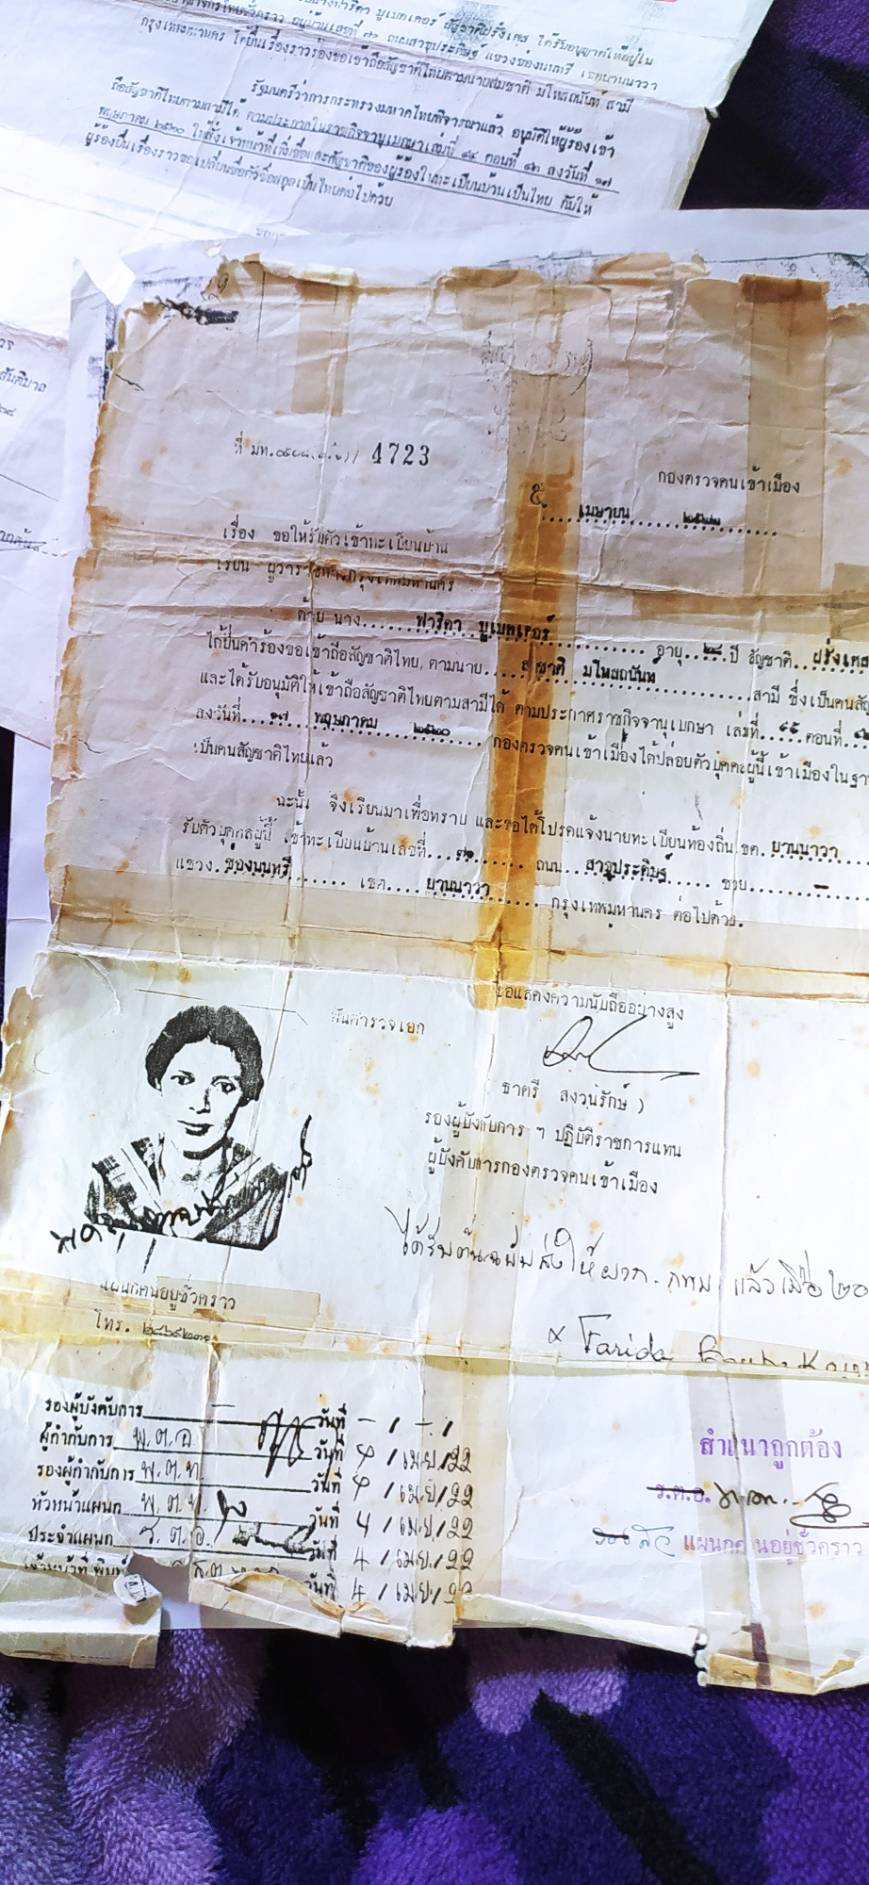 กรุงเทพมหานคร ได้ยื่นเรื่องราวร้องขอเข้าถือสัญชาติไทยตามนายสมชาติ มโหสถนันท์ สามี
รัฐมนตรีว่าการกระทรวงมหาดไทยพิจารณาแล้ว อนุมัติให้ผู้ร้องเข้า
ถือสัญชาติไทยตามสามีได้ ตามประกาศในราชกิจจานุเบกษาเล่มที่ ๙๔ ตอนที่ ๔๒ ลงวันที่ ๑๗
พฤษภาคม ๒๕๒๐
ผู้ร้องยื่นเรื่องราวขอเปลี่ยนชื่อตัวชื่อสกุลเป็นไทยต่อไปด้วย
สันติบาล
ที่ มท. 4723
กองตรวจคนเข้าเมือง
๕ เมษายน ๒๕๒๒
เรื่อง ขอให้รับตัวเข้าทะเบียนบ้าน
เรียน ผู้ว่าราชการกรุงเทพมหานคร
ด้วย นาง ฟาริดา บูเบคเคอร์ อายุ ๒๘ ปี สัญชาติ ฝรั่งเศส
ได้ยื่นคำร้องขอเข้าถือสัญชาติไทย ตามนาย สมชาติ มโหสถนันท์ สามี ซึ่งเป็นคนสัญ
และได้รับอนุมัติให้เข้าถือสัญชาติไทยตามสามีได้ ตามประกาศราชกิจจานุเบกษา เล่มที่ ๙๔ ตอนที่
ลงวันที่ ๑๗ พฤษภาคม ๒๕๒๐ กองตรวจคนเข้าเมืองได้ปล่อยตัวบุคคลผู้นี้เข้าเมืองในฐา
เป็นคนสัญชาติไทยแล้ว
ฉะนั้น จึงเรียนมาเพื่อทราบ และขอได้โปรดแจ้งนายทะเบียนท้องถิ่น เขต ยานนาวา
รับตัวบุคคลผู้นี้ เข้าทะเบียนบ้านเลขที่ ๗๑ ถนน สาธุประดิษฐ์ ซอย -
แขวง ช่องนนทรี เขต ยานนาวา กรุงเทพมหานคร ต่อไปด้วย.
ขอแสดงความนับถืออย่างสูง
พันตำรวจเอก
ธาตรี สงวนรักษ์ )
รองผู้บังคับการ ฯ ปฏิบัติราชการแทน
ผู้บังคับการกองตรวจคนเข้าเมือง
ได้รับต้นฉบับส่งให้ ผวก. กทม. แล้วเมื่อ ๒๐
แผนกคนอยู่ชั่วคราว
โทร.
x Farida
รองผู้บังคับการ - วันที่ - / - /
ผู้กำกับการ พ.ต.อ. วันที่ 4 / เม.ย. / 22
รองผู้กำกับการ พ.ต.ท. วันที่ 4 / เม.ย. / 22
หัวหน้าแผนก พ.ต.ท. วันที่ 4 / เม.ย. / 22
ประจำแผนก ร.ต.อ. วันที่ 4 / เม.ย. / 22
เจ้าหน้าที่พิมพ์ วันที่ 4 / เม.ย. / 22
สำเนาถูกต้อง
ร.ต.อ.
แผนกคนอยู่ชั่วคราว